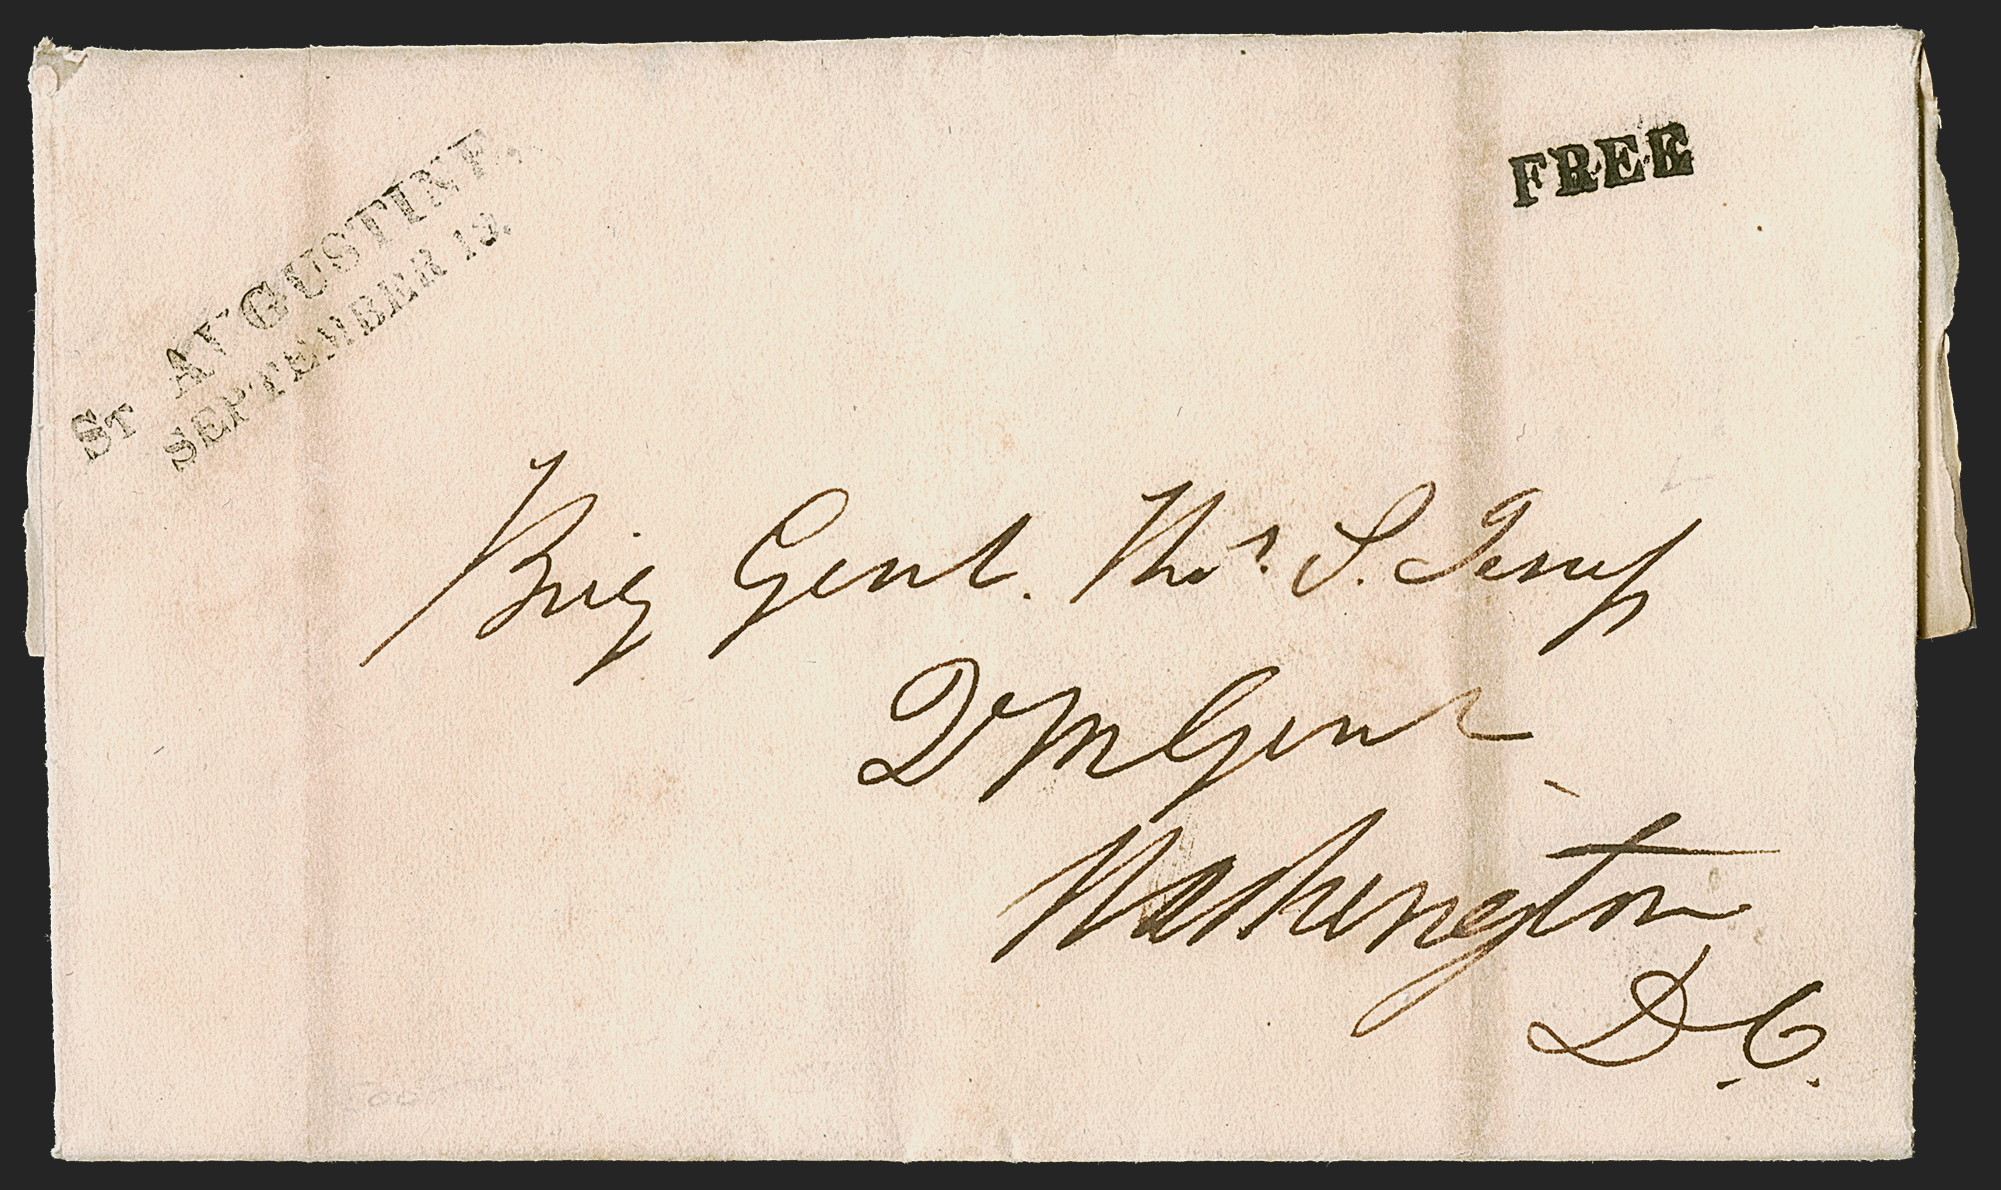 St AUGUSTINE,
SEPTEMBER 19.
FREE
Brig Genl. Thos. S. Jesup
Qr M Genl
Washington
D.C.